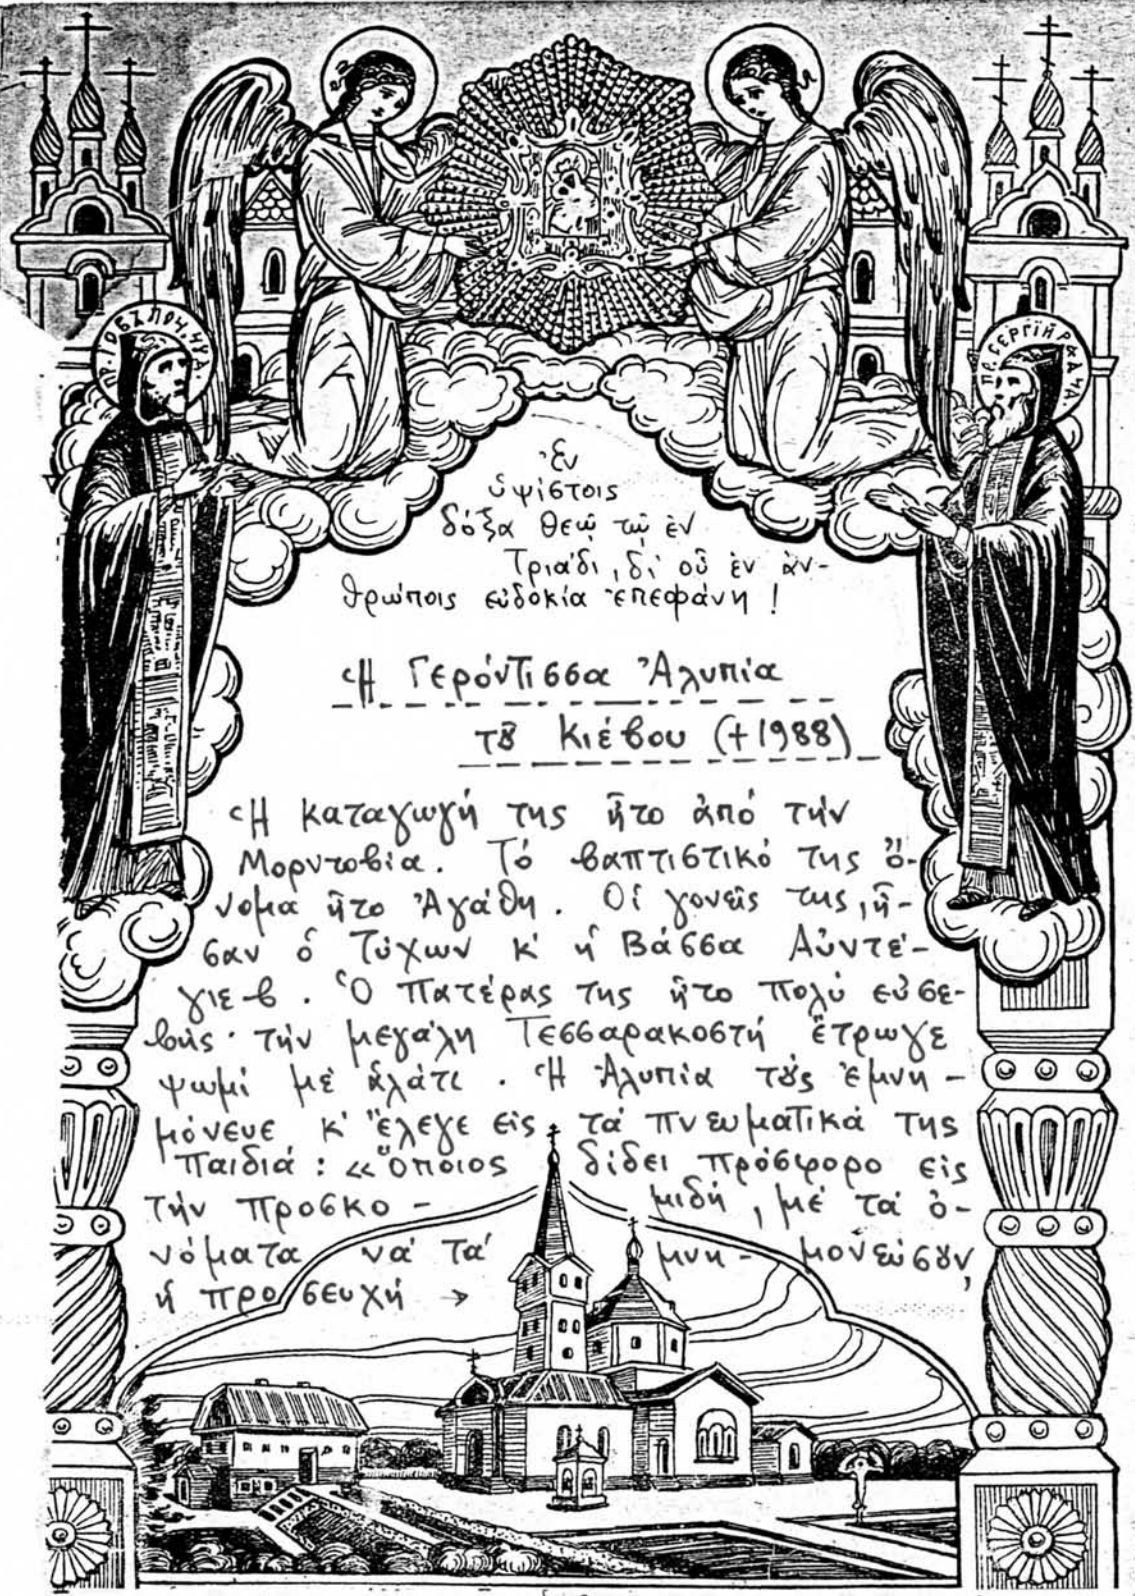 ПР. ІОВЪ ПОЧ.
ПР. СЕРГІЙ РАД
Ἐν
ὑψίστοις
δόξα Θεῷ τῷ ἐν
Τριάδι, δι' οὗ ἐν ἀν-
θρώποις εὐδοκία ἐπεφάνη!
Ἡ Γερόντισσα Ἀλυπία
τȣ Κιέβου (+1988)
Ἡ καταγωγή της ἦτο ἀπό τήν
Μορντοβία. Τό βαπτιστικό της ὄ-
νομα ἦτο Ἀγάθη. Οἱ γονεῖς της, ἦ-
σαν ὁ Τύχων κ' ἡ Βάσσα Αὐντέ-
γιεβ. Ὁ πατέρας της ἦτο πολύ εὐσε-
βής· τήν μεγάλη Τεσσαρακοστή ἔτρωγε
ψωμί μέ ἁλάτι. Ἡ Ἀλυπία τȣ́ς ἐμνη-
μόνευε κ' ἔλεγε εἰς τά πνευματικά της
παιδιά: «Ὅποιος δίδει πρόσφορο εἰς
τήν προσκο- μιδή, μέ τά ὀ-
νόματα νά τά μνη- μονεύσȣν,
ἡ προσευχή →